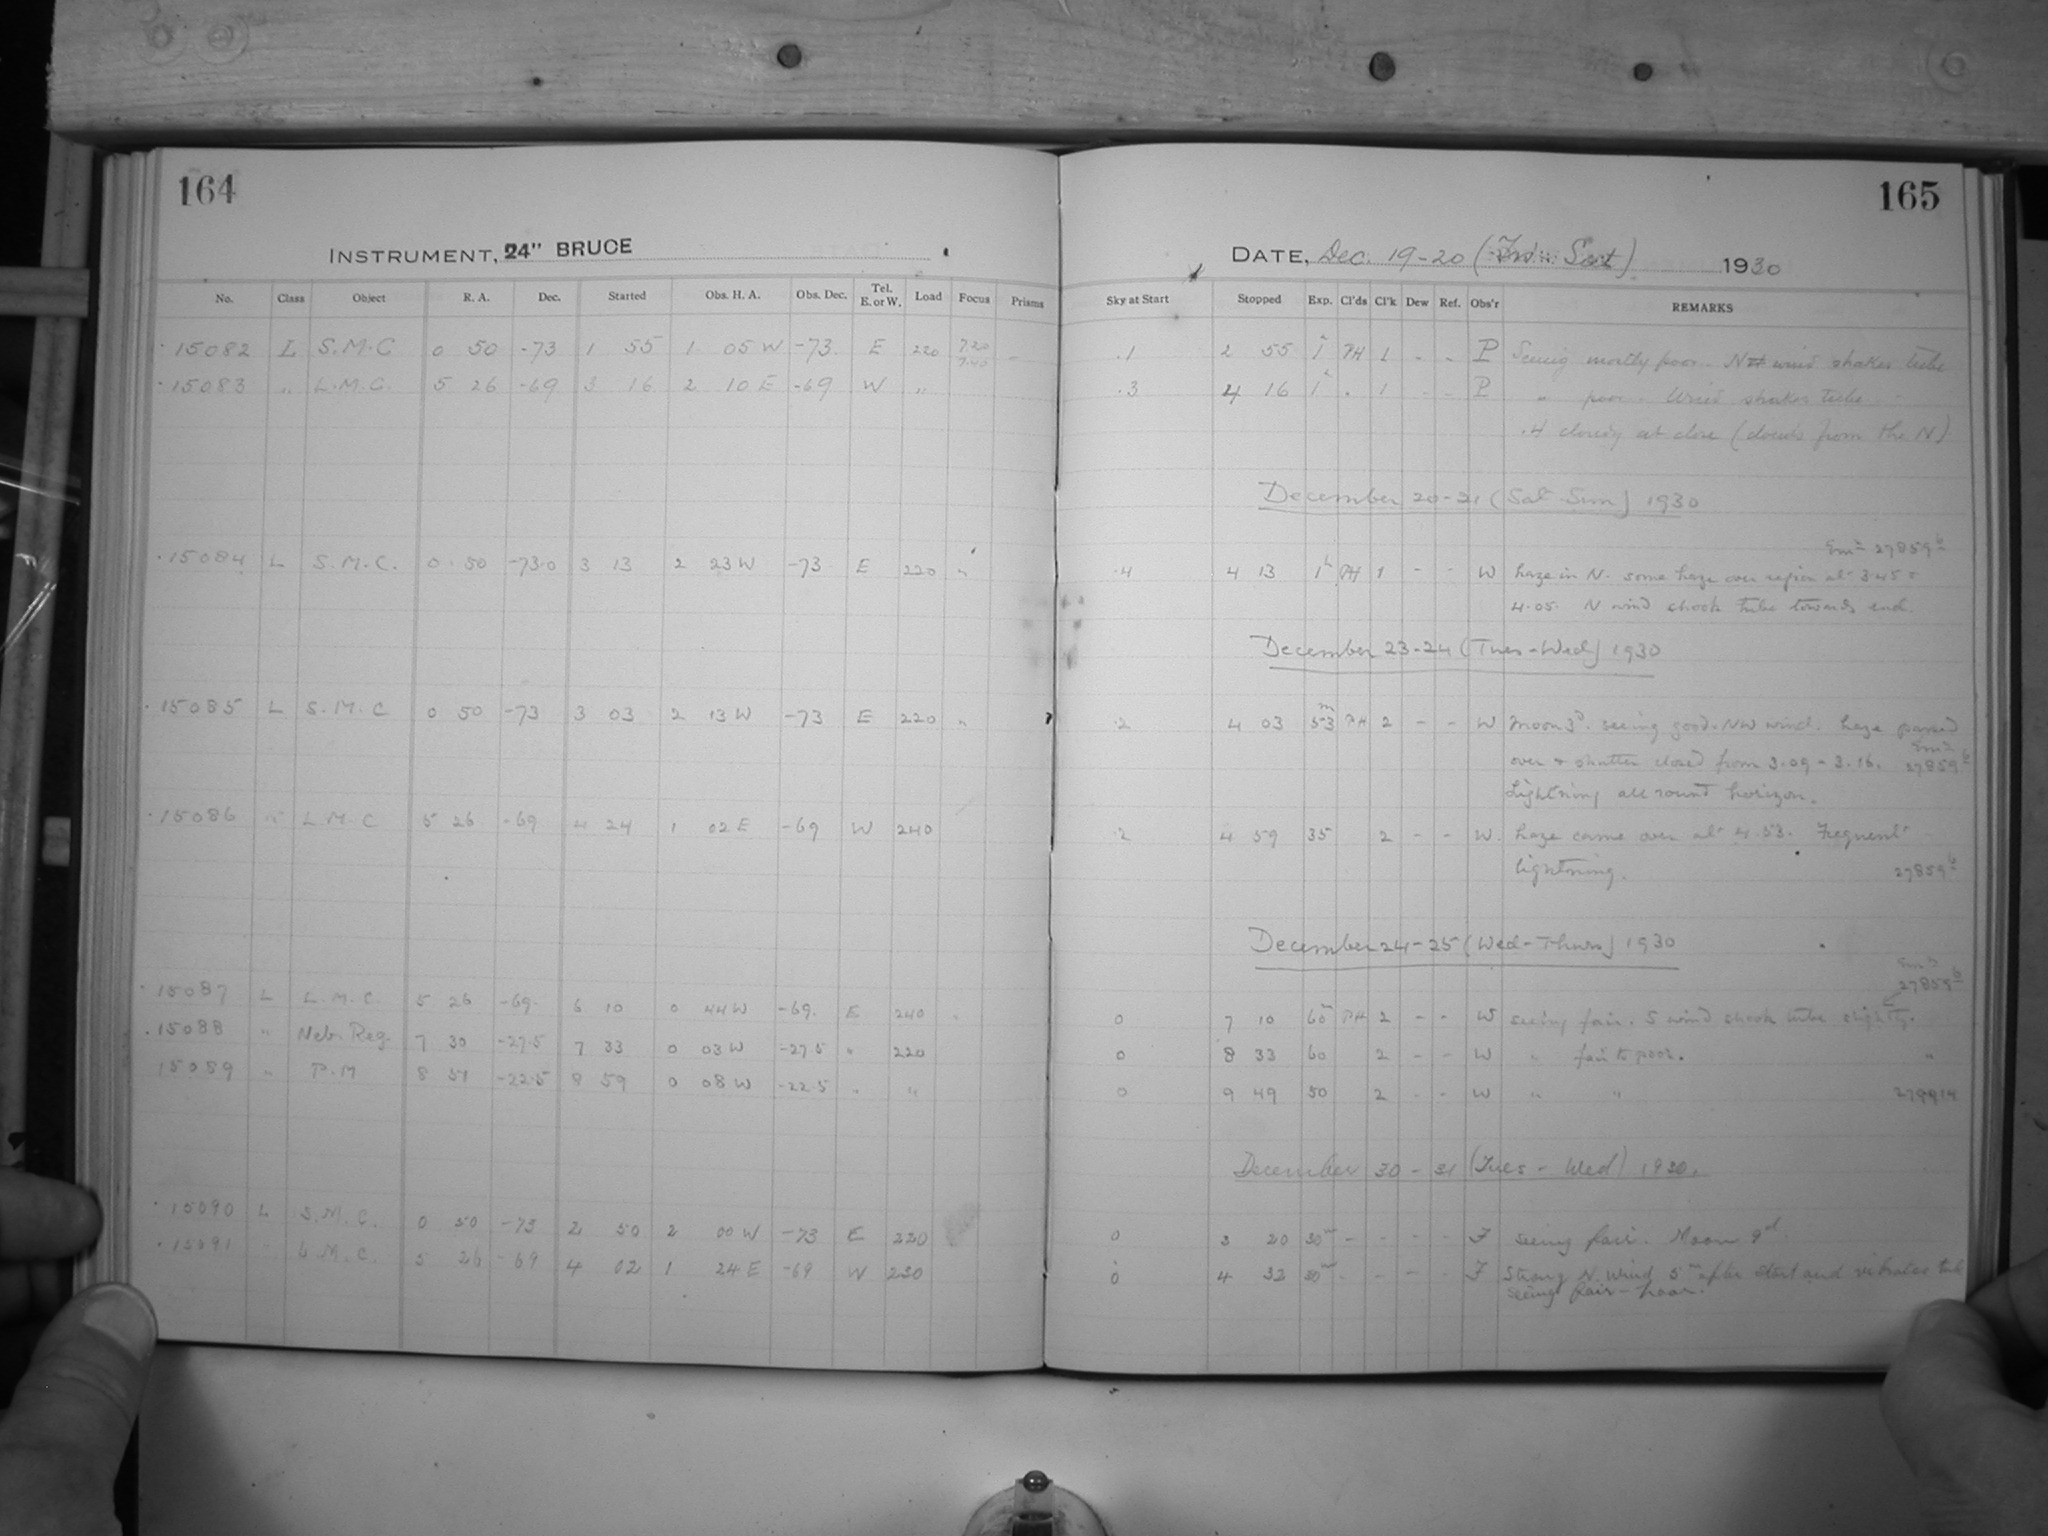 164
INSTRUMENT, 24" BRUCE
No. Class Object R. A. Dec. Started Obs. H. A. Obs. Dec. Tel. E. or W. Load Focus Prisms
15082 L S.M.C 0 50 -73 1 55 1 05 W -73. E 220 7.20 7.40 -
15083 " L.M.C. 5 26 -69 3 16 2 10 E -69 W "
15084 L S.M.C. 0 50 -73.0 3 13 2 23 W -73 E 220 "
15085 L S.M.C 0 50 -73 3 03 2 13 W -73 E 220 "
15086 " L M C 5 26 -69 4 24 1 02 E -69 W 240
15087 L L.M.C. 5 26 -69. 6 10 0 44 W -69. E 240 "
15088 " Neb. Reg. 7 30 -27.5 7 33 0 03 W -27.5 " 220
15089 " P.M 8 51 -22.5 8 59 0 08 W -22.5 " "
15090 L S.M.C. 0 50 -73 2 50 2 00 W -73 E 220
15091 L.M.C. 5 26 -69 4 02 1 24 E -69 W 230
165
DATE, Dec. 19-20 (Fri. Sat) 1930
Sky at Start Stopped Exp. Cl'ds Cl'k Dew Ref. Obs'r REMARKS
.1 2 55 1h PH 1 - - P Seeing mostly poor. wind shakes tube
.3 4 16 1h . 1 - - P " poor. Wind shakes tube
.4 cloudy at close (clouds from the N)
December 20-21 (Sat-Sun) 1930
27859b
.4 4 13 1h PH 1 - - W haze in N. some haze over region at 3.45 &
4.05. N wind shook tube towards end.
December 23-24 (Tues-Wed) 1930
.2 4 03 53m PH 2 - - W Moon 3d. seeing good. NW wind. haze passed
over & shutter closed from 3.09 - 3.16. 27859b
Lightning all round horizon.
.2 4 59 35 2 - - W. haze came over at 4.53. Frequent
lightning. 27859b
December 24-25 (Wed-Thurs) 1930
27859b
0 7 10 60m PH 2 - - W seeing fair. S wind shook tube slightly.
0 8 33 60 2 - - W " fair to poor. "
0 9 49 50 2 - - W " "
December 30-31 (Tues - Wed) 1930.
0 3 20 30m - - - - F seeing fair. Moon 9d
0 4 32 30m - - - - F Strong N. Wind 5m after start and vibrates tube
seeing fair - poor.